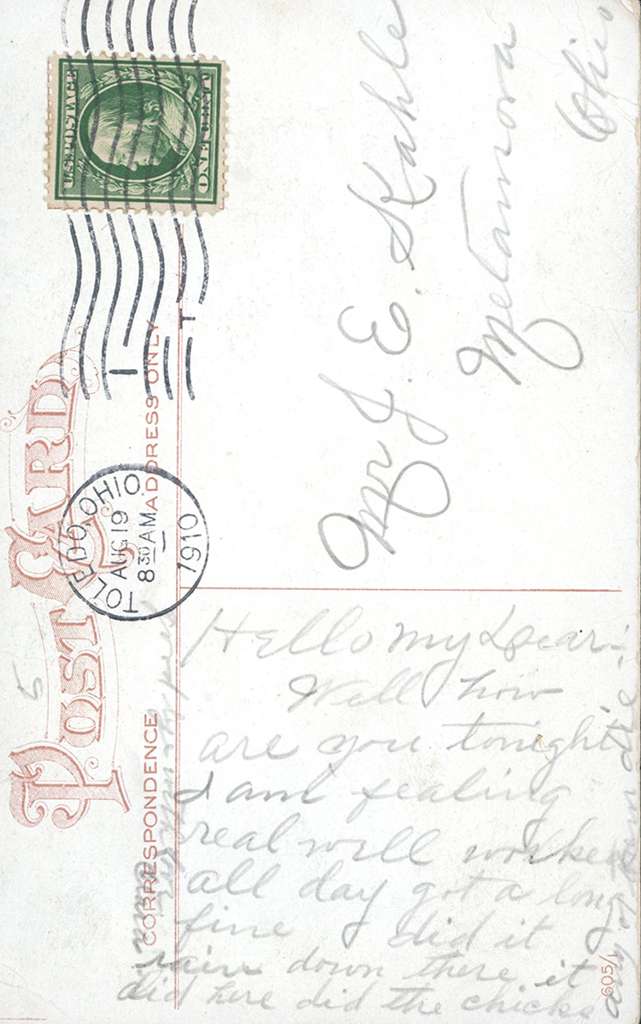 POST CARD
CORRESPONDENCE
ADDRESS ONLY
U.S. POSTAGE
ONE CENT
TOLEDO, OHIO.
AUG 19
8 30 AM
1910
I
T
5
Mr J. E. Kahle
Metamora
Ohio
Hello my Dear:
Well how
are you tonight
I am fealing
real well worked
all day got a long
fine did it
rain down there it
did here did the chicks
any
605/1